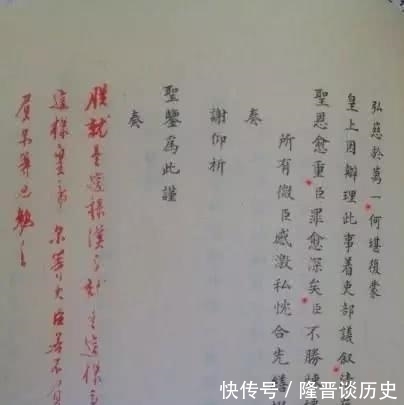 弘慈於萬一何堪復蒙
皇上因辦理此事着吏部議叙
聖恩愈重臣罪愈深矣臣不勝
所有微臣感激私忱合先繕
奏
謝仰祈
聖鑒為此謹
奏
朕就是這樣漢子就是這樣
這樣皇帝尔等大臣若不負
負尔等也勉之
快传号 / 隆晋谈历史